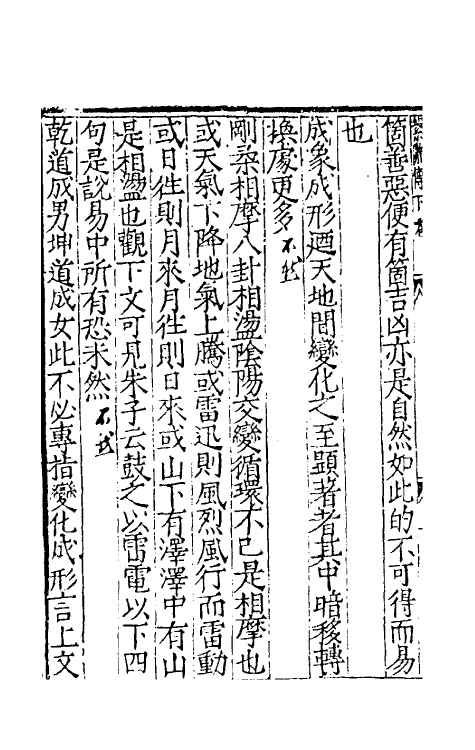 箇善惡便有箇吉凶亦是自然如此的不可得而易
也
成象成形迺天地間變化之至顯著者其中暗移轉
換處更多
剛柔相摩八卦相盪陰陽交變循環不已是相摩也
或天氣下降地氣上騰或雷迅則風烈風行而雷動
或日往則月來月往則日來或山下有澤澤中有山
是相盪也觀下文可見朱子云鼓之以雷電以下四
句是說易中所有恐未然
乾道成男坤道成女此不必專指變化成形言上文